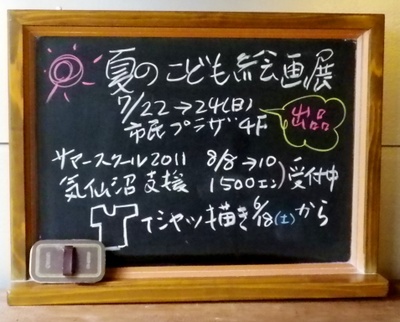 夏のこども絵画展
7/22→24(日)
市民プラザ4F
出品
サマースクール2011 8/8→10
気仙沼支援 1500エン)受付中
Tシャツ描き6/18(土)から